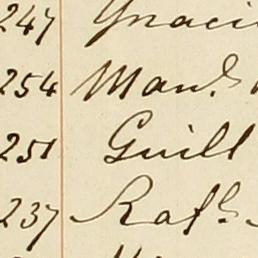 247 Ynaci
254 Man.l
251 Guill
237 Raf.l